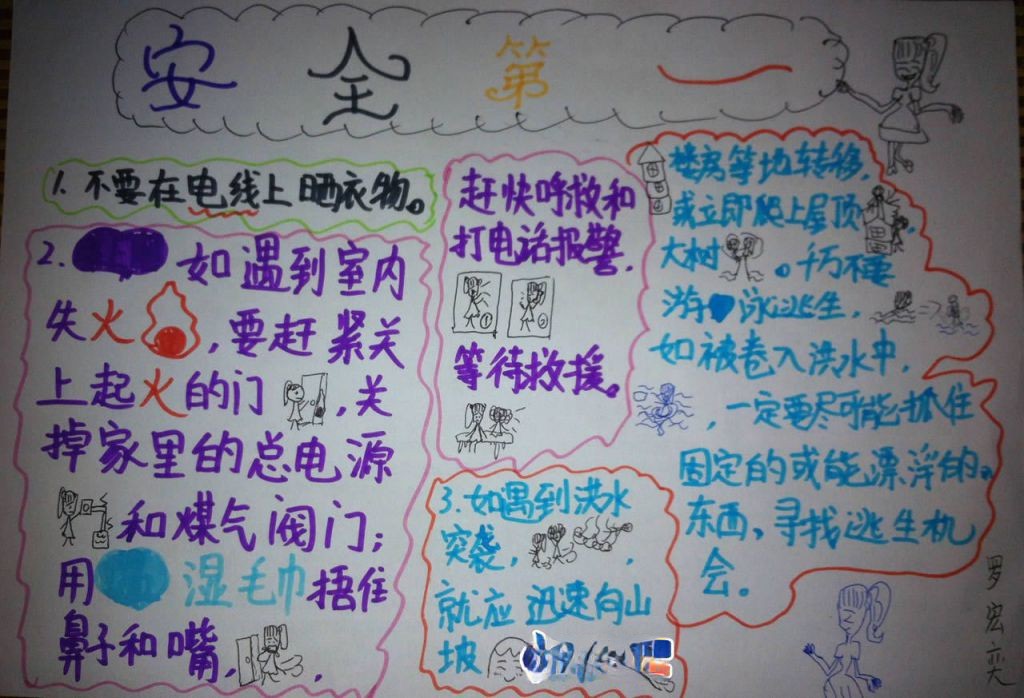 安全第一
1.不要在电线上晒衣物。
2.如遇到室内
失火，要赶紧关
上起火的门，关
掉家里的总电源
和煤气阀门；
用湿毛巾捂住
鼻子和嘴，
赶快呼救和
打电话报警，
①②
等待救援。
3.如遇到洪水
突袭，
就应迅速向山
坡
楼房等地转移，
或立即爬上屋顶，
大树。千万不要
游泳逃生，
如被卷入洪水中，
一定要尽可能抓住
固定的或能漂浮的
东西，寻找逃生机
会。
罗宏奕